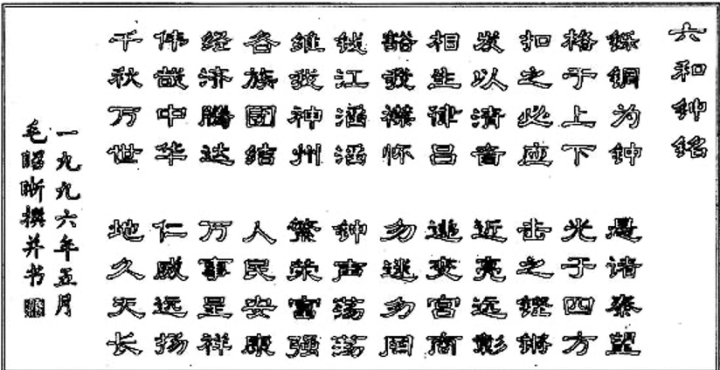 六和钟铭
铄铜为钟 悬诸秦望
格于上下 光于四方
扣之必应 击之铿锵
发以清音 近亮远彰
相生律吕 递变宫商
豁我襟怀 勿迷勿罔
钱江涵涵 钟声荡荡
维我神州 繁荣富强
各族團结 人民安康
经济腾达 万事呈祥
伟哉中华 仁威远扬
千秋万世 地久天长
一九九六年五月
毛昭晰撰并书